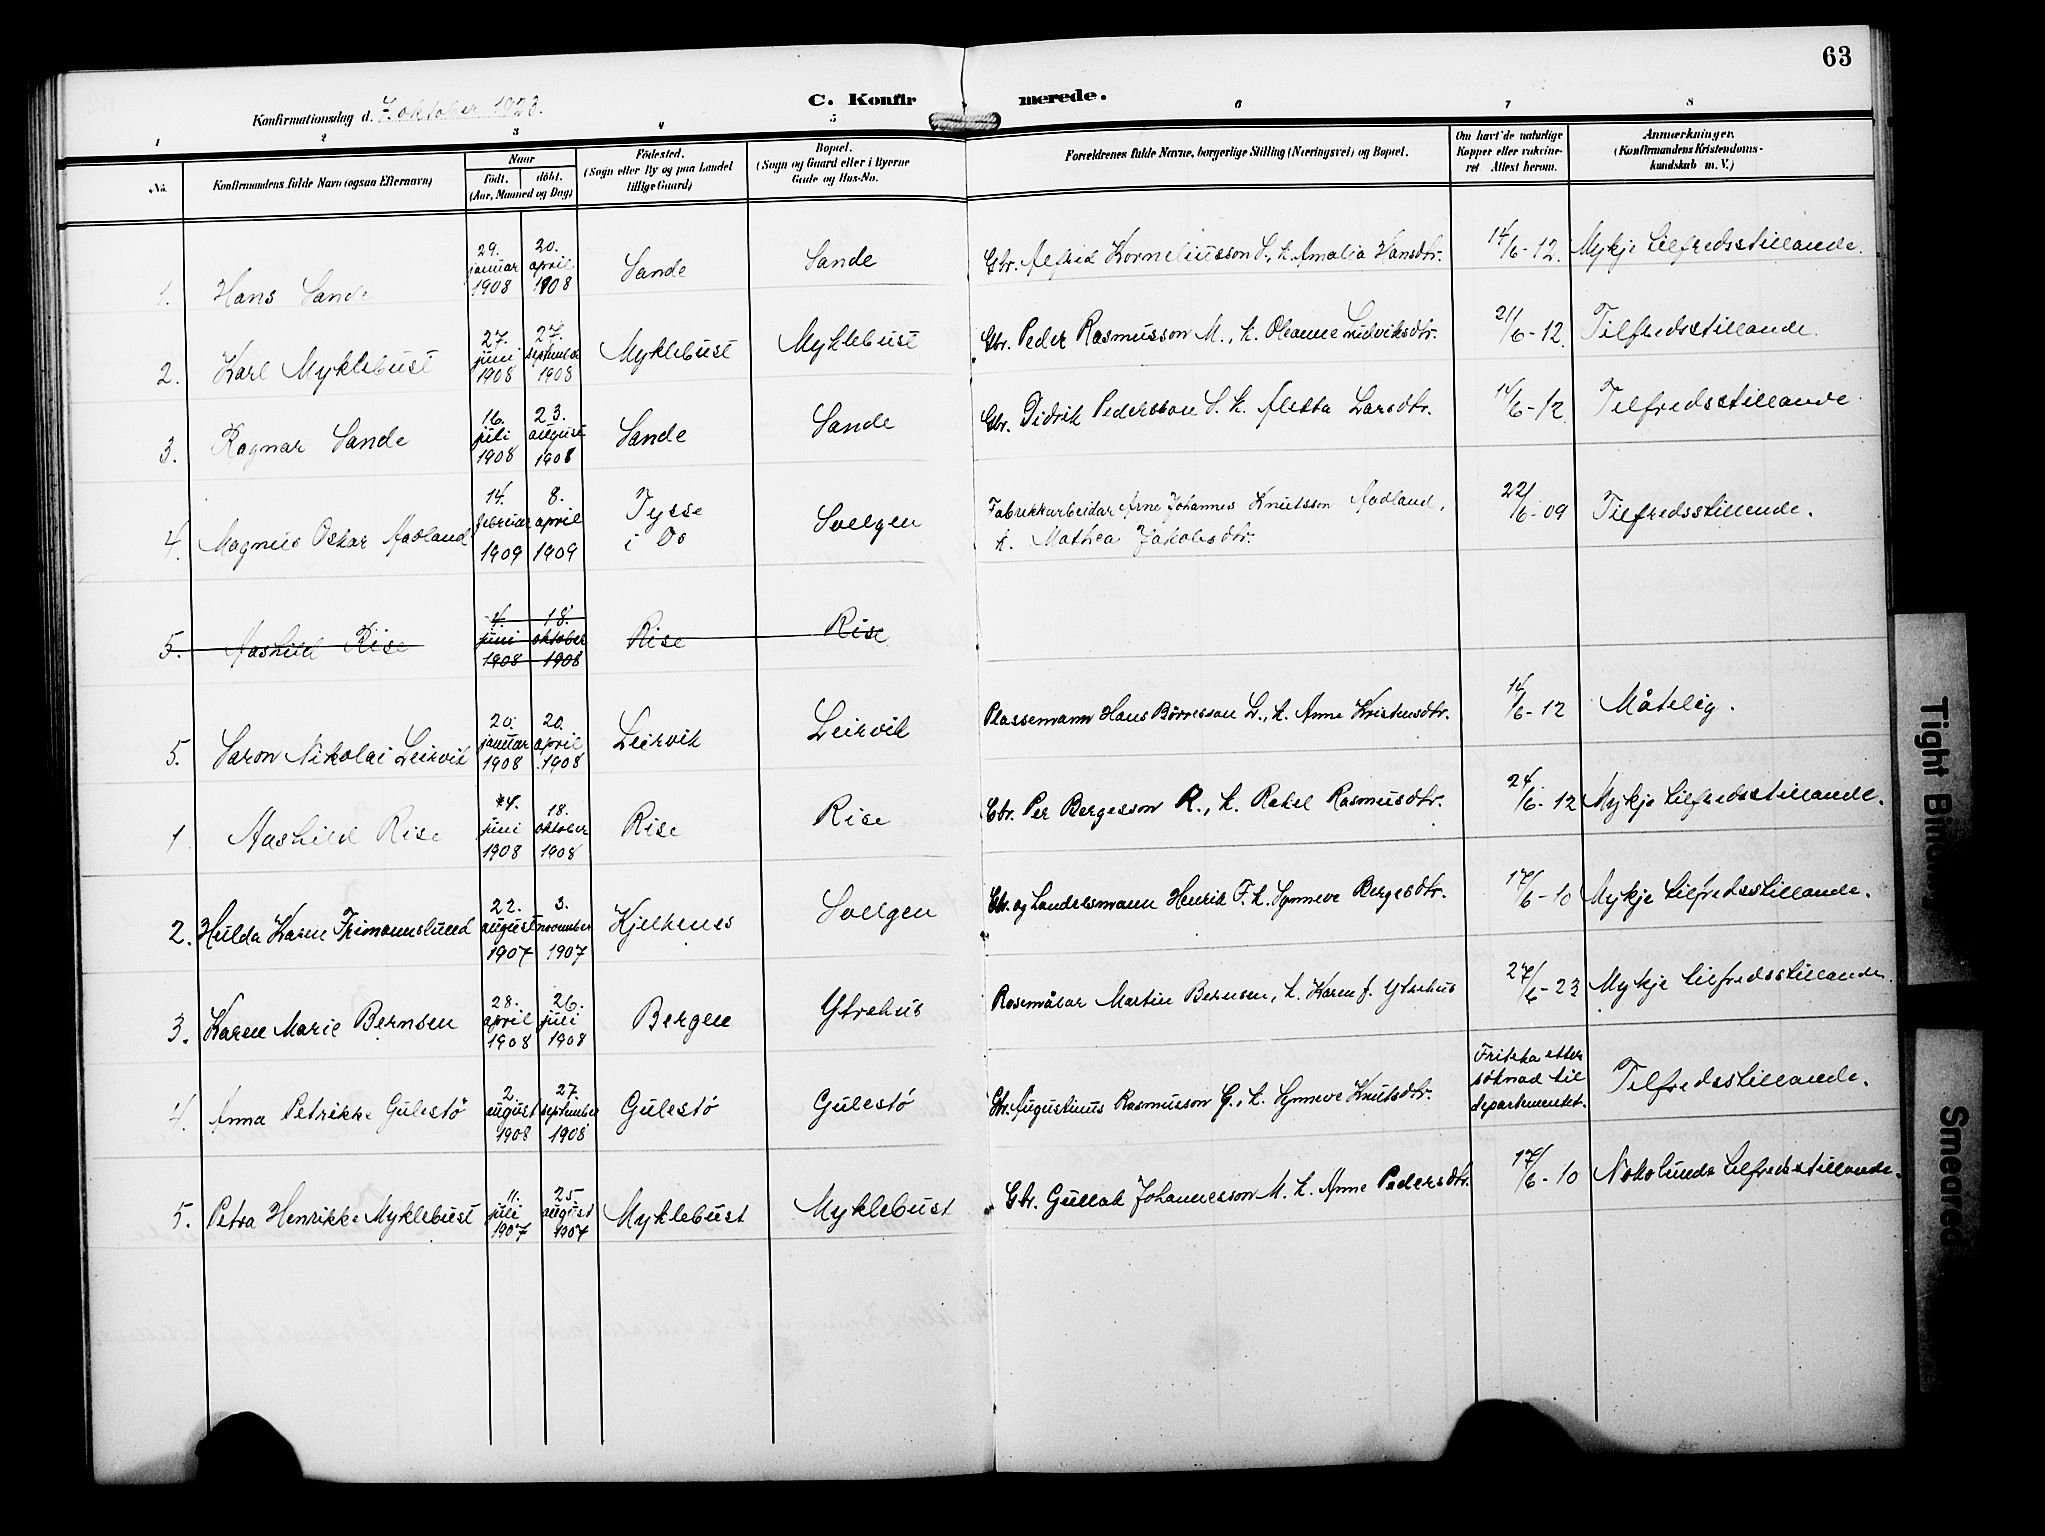 63
Konfirmationsdag d. 7. oktober 1923.
C. Konfirmerede.
1 2 3 4 5 6 7 8
No.
Konfirmandens fulde Navn (ogsaa Efternavn)
Naar
født. døbt.
(Aar, Maaned og Dag)
Fødested.
(Sogn eller By og paa Landet
tillige Gaard)
Bopæl.
(Sogn og Gaard eller i Byerne
Gade og Hus-No.
Forældrenes fulde Navne, borgerlige Stilling (Næringsvei) og Bopæl.
Om havt de naturlige
Kopper eller vakcine-
ret Attest herom.
Anmærkninger.
(Konfirmandens Kristendoms-
kundskab m. V.)
1. Hans Sande 29. januar 1908 20. april 1908 Sande Sande Gbr. Alfrid Korneliusson S., k. Amalia Hansdtr. 14/6-12. Mykje tilfredsstillande.
2. Karl Myklebust 27. juni 1908 27. september 1908 Myklebust Myklebust Gbr. Peder Rasmusson M., k. Oleanne Ludviksdtr. 21/6-12. Tilfredsstillande.
3. Ragnar Sande 16. juli 1908 23. august 1908 Sande Sande Gbr. Didrik Pedersson S. k. Aletta Larsdtr. 14/6-12 Tilfredsstillande
4. Magnus Oskar Aadland 14. februar 1909 8. april 1909 Tysse i Os Svelgen Fabrikkarbeidar Arne Johannes Knutsson Aadland,
k. Mathea Jakobsdtr. 22/6-09 Tilfredsstillende.
5. Aashild Rise 4. juni 1908 18. oktober 1908 Rise Rise
5. Saron Nikolai Leirvik 20. januar 1908 20. april 1908 Leirvik Leirvik Plassemann Hans Børresson L., k. Anne Kristensdtr. 14/6-12 Måtelig.
1 Aashild Rise 4. juni 1908 18. oktober 1908 Rise Rise Gbr. Per Bergesson R., k. Rakel Rasmusdtr. 24/6-12 Mykje tilfredsstillande.
2. Hulda Karen Frimannslund 22. august 1907 3. november 1907 Kjelkenes Svelgen Gbr. og Landelsmann Henrik F. k. Synneve Bergesdtr. 17/6-10 Mykje tilfredsstillande.
3. Karen Marie Bernsen 28. april 1908 26. juli 1908 Bergen Ytrehus Rosemålar Martin Bernsen, k. Karen f. Ytrehus 27/6-23 Mykje tilfredsstillande
4. Anna Petrikke Gulestø 2. august 1908 27. september 1908 Gulestø Gulestø Gbr. Augustinus Rasmusson G., k. Synneve Knutsdtr. Friteka etter
søknad til
departementet. Tilfredsstillande.
5. Petra Henrikke Myklebust 11. juli 1907 25 august 1907 Myklebust Myklebust Gbr. Gullak Johannesson M. k. Anne Pedersdtr. 17/6-10 Nokolunde tilfredsstillande.
Tight
Smeared